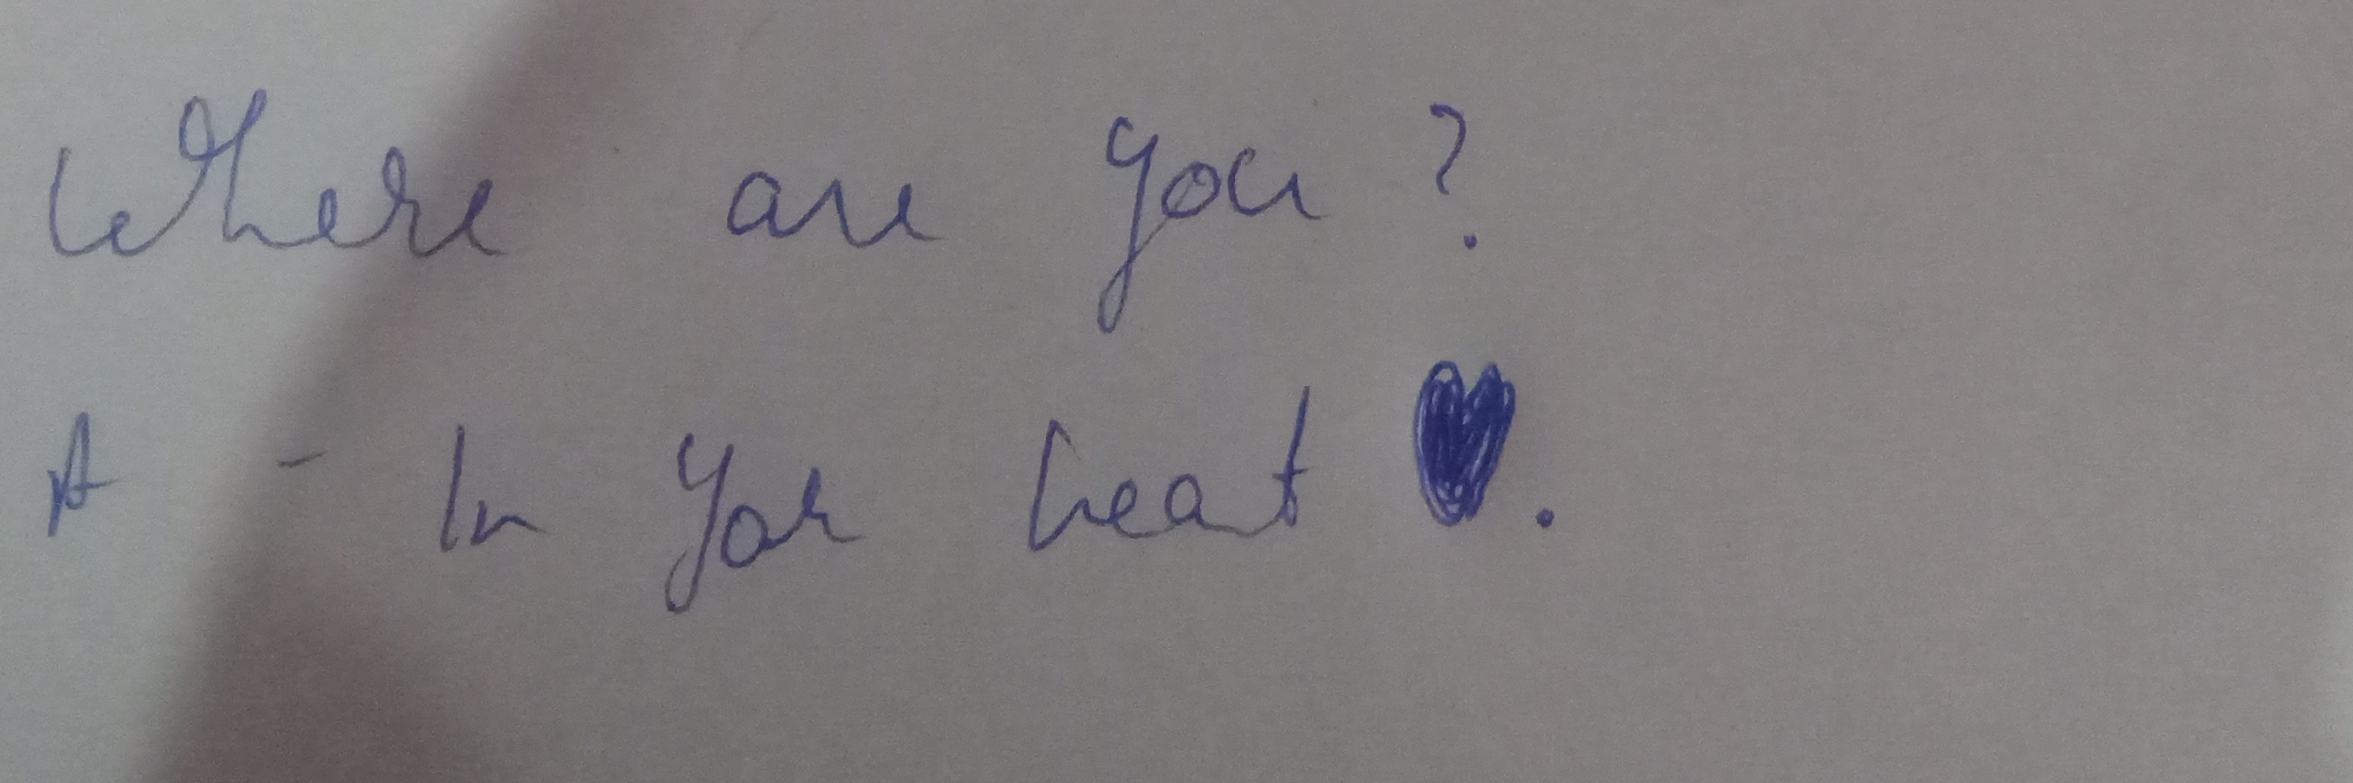 Where are you?
A - In your heart ♥.